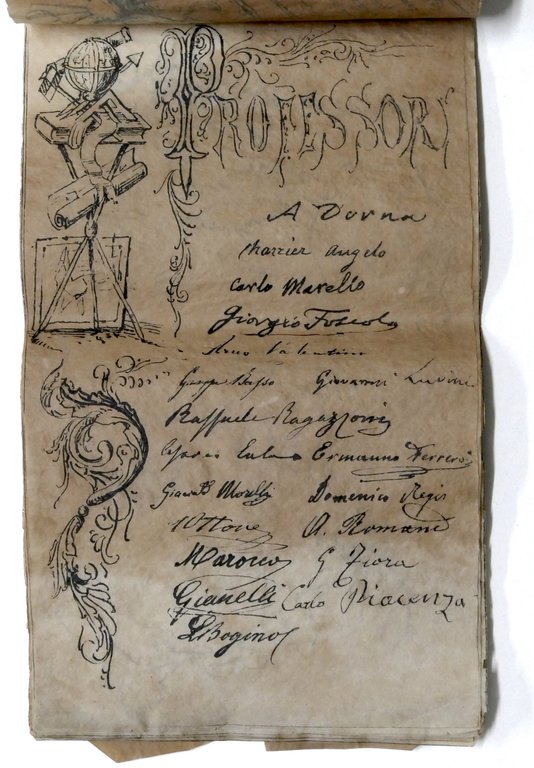 PROFESSORI
A Dorna
Charrier Angelo
Carlo Marello
Giorgio Foscolo
Arno Valentino
Giuseppe Basso Giovanni Luvini
Raffaele Ragazzoni
Ermanno Ferrero
Morelli Domenico Regis
Ottone A. Romani
Marocco G Fiora
Gianelli Carlo Piacenza
L Bogino